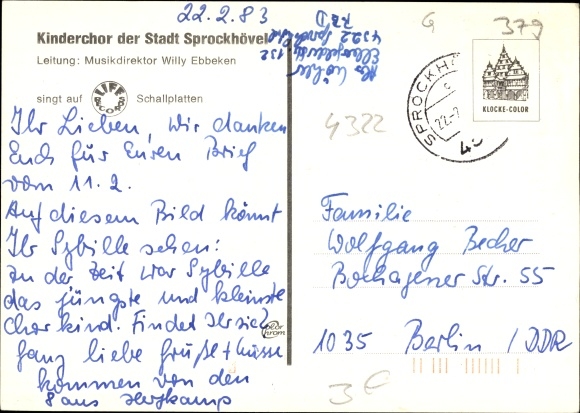 22.2.83
Kinderchor der Stadt Sprockhövel
Leitung: Musikdirektor Willy Ebbeken
singt auf LIFE RECORDS Schallplatten
Ihr Lieben, wir danken
Euch für Euren Brief
vom 11.2.
Auf diesem Bild könnt
Ihr Sybille sehen:
zu der Zeit war Sybille
das jüngste und kleinste
Chorkind. Findet Ihr sie?
ganz liebe Grüße + Küsse
kommen von den
8 aus
color chrom
132
4322
G
379
SPROCKH
22.-
KLOCKE-COLOR
4322
Familie
Wolfgang Becher
Boxhagener Str. 55
1035 Berlin / DDR
3€